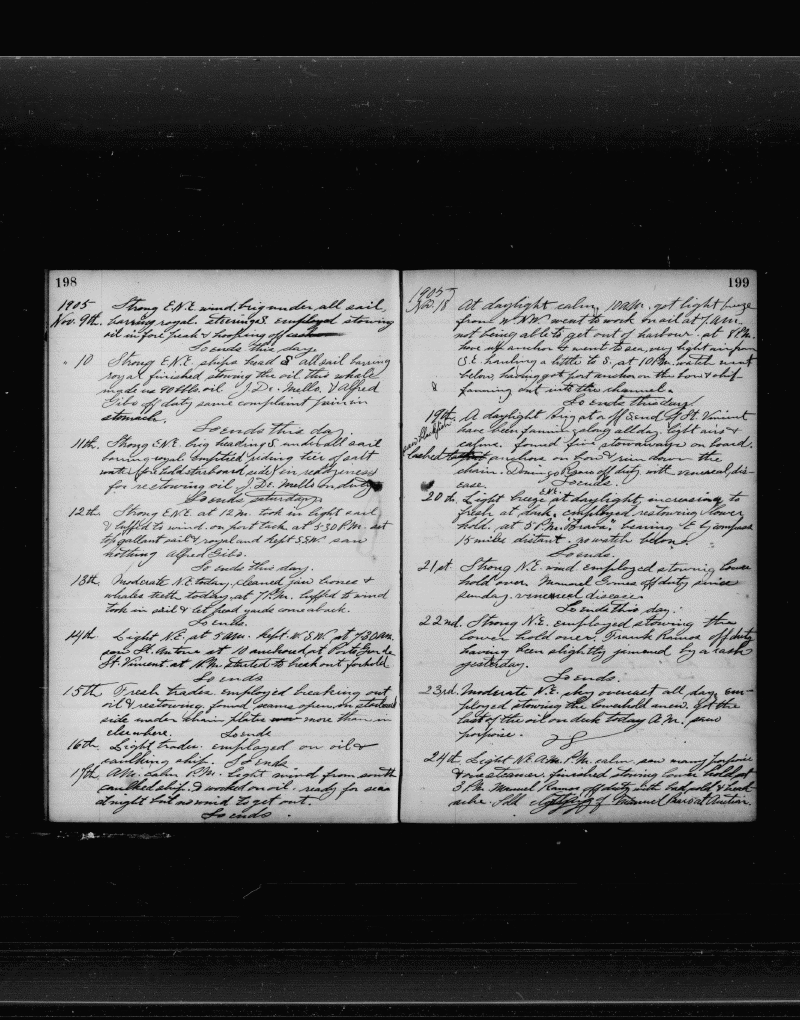 198
1905 Strong E.N.E. wind, brig under all sail
Nov. 9th. barring royal. steering S. employed stowing
oil in fore peak & hooping off
So ends this day.
" 10 Strong E.N.E. ships head S all sail barring
royal finished stowing the oil this whale
made us 90 bbls oil J. De. Mello. & Alfred
Gibs off duty same complaint pain in
stomach.
So ends this day.
11th. Strong E.N.E. brig heading S. under all sail
barring royal. emptied riding tier of salt
water (fore hold starboard side) in readiness
for restowing oil J. De. Mello on duty
So ends saturday.
12th. Strong E.N.E. at 12 M. took in light sail
& luffed to wind. on port tack at 5.30 P.M. set
topgallant sail & royal and kept S.S.W. saw
nothing Alfred Gibs.
So ends this day.
13th. Moderate N.E. today, cleaned jaw bones &
whales teeth today, at 7 P.M. luffed to wind
took in sail & let head yards come aback.
So ends
14th Light N.E. at 5 AM. kept W.S.W. at 7.30 AM.
saw St. Antone at 10 anchored at Porto Grande
St. Vincent at 1 P.M. started to break out forhold
So ends
15th Fresh trades. employed breaking out
oil & restowing, found seams open on starboard
side under chain plates more than in
elsewhere. So ends
16th Light trades. employed on oil &
caulking ship. So ends
17th AM. calm P.M. light wind from south
caulked ship & worked on oil. ready for sea
at night but no wind to get out.
So ends.
199
1905
Nov. 18 At daylight calm, 10 AM. got light breeze
from W.N.W. went to work on oil at 1 P.M.
not being able to get out of harbour. at 8 P.M.
hove off anchor & went to sea, very light air from
S.E. hauling a little to S. at 10 P.M. watch went
below, having got port anchor on the bow & ship
fanning out into the channel.
So ends this day
19th. A daylight brig at off S. end of St. Vincent
have been fanning along all day. light airs &
calms. found five stowaways on board.
lashed anchors on bow & run down the
chain. Domingo Gone off duty with venereal dis-
ease. So ends.
20th. Light breeze E.N.E. at daylight, increasing to
fresh at dark. employed restowing lower
hold. at 5 P.M. "Brava" bearing E by compass
15 miles distant. no watch below.
So ends.
21st Strong N.E. wind employed stowing lower
hold over. Manuel Gomes off duty since
sunday. venereal disease.
So ends this day.
22nd. Strong N.E. employed stowing the
lower hold over. Frank Ramos off duty
having been slightly jammed by a cask
yesterday.
So ends.
23rd. Moderate N.E. sky overcast all day, em-
ployed stowing the lower hold anew. Got the
last of the oil on deck today A.M. saw
porpoise.
24th. Light N.E. A.M. P.M. calm, saw many porpoise
& one steamer. finished stowing lower hold at
3 P.M. Manuel Ramos off duty with bad cold & head-
ache. Sold of Manuel at Auction.